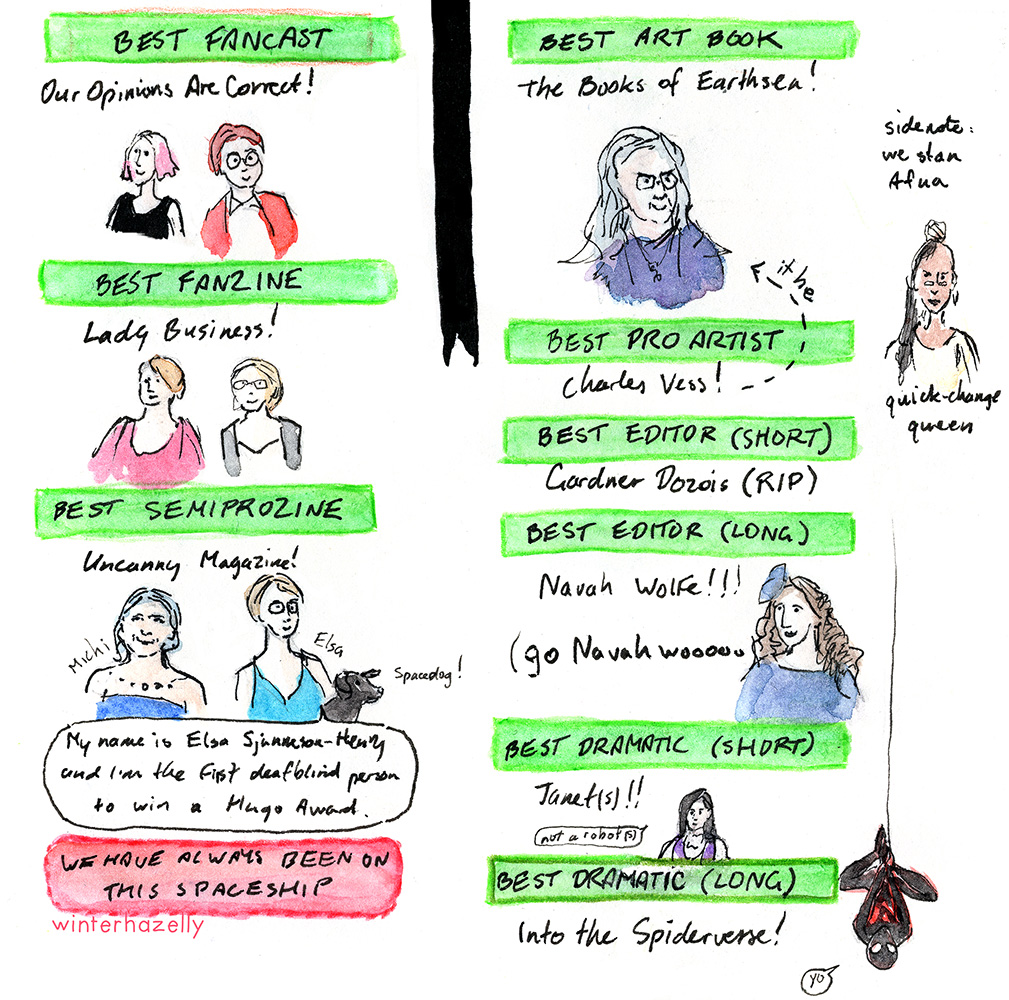 BEST FANCAST
Our Opinions Are Correct!
BEST FANZINE
Lady Business!
BEST SEMIPROZINE
Uncanny Magazine!
Michi
Elsa
Spacedog!
My name is Elsa Sjunneson-Henry
and I'm the First deafblind person
to win a Hugo Award.
WE HAVE ALWAYS BEEN ON
THIS SPACESHIP
winterhazelly
BEST ART BOOK
The Books of Earthsea!
sidenote:
we stan
Afua
quick-change
queen
BEST PRO ARTIST
Charles Vess!
BEST EDITOR (SHORT)
Gardner Dozois (RIP)
BEST EDITOR (LONG)
Navah Wolfe!!!
(go Navah wooooo
BEST DRAMATIC (SHORT)
Janet(s)!!
not a robot(s)
BEST DRAMATIC (LONG)
Into the Spiderverse!
yo